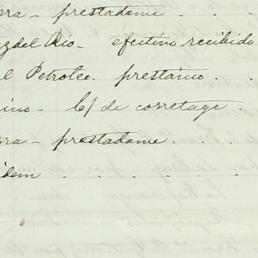 ra – prestademe . . .
z del Rio – efectivo recibido
l Petroleo. prestamo . .
ino – C/ de corretage . .
ra – prestademe . . .
idem . . . . .